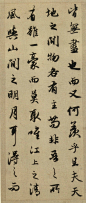 皆無盡也而又何羨乎且夫天
地之間物各有主苟非吾之所
有雖一毫而莫取惟江上之清
風與山間之明月耳得之而